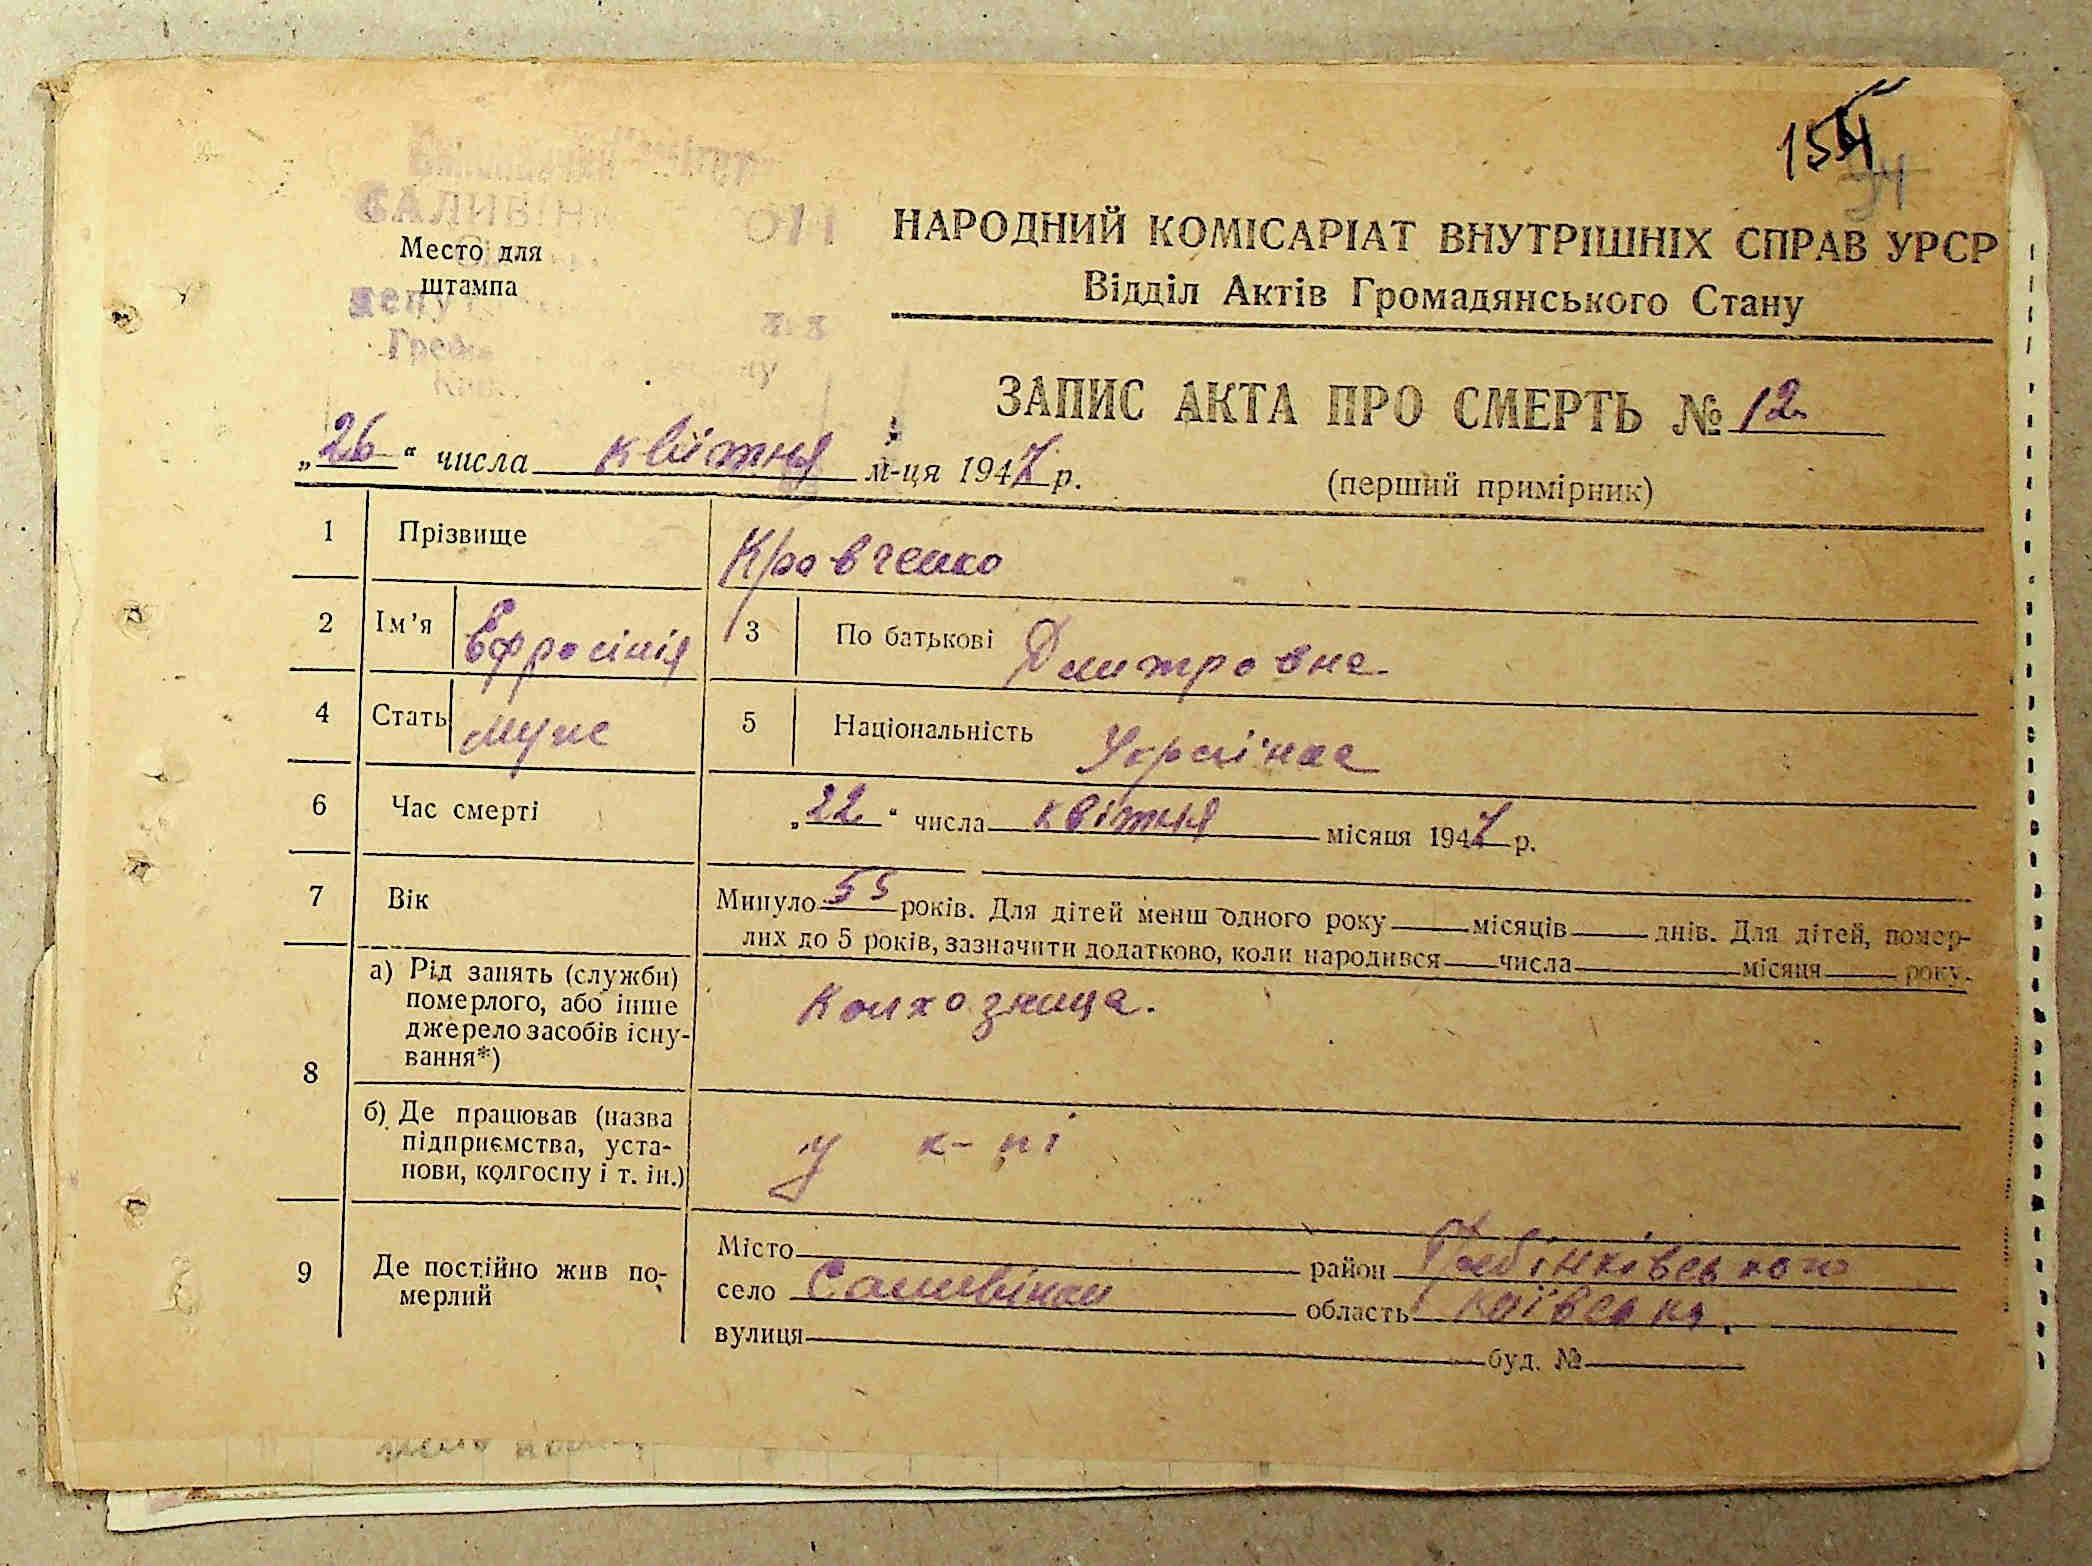 154
САЛИВІН
Место для
штампа
НАРОДНИЙ КОМІСАРІАТ ВНУТРІШНІХ СПРАВ УРСР
Відділ Актів Громадянського Стану
ЗАПИС АКТА ПРО СМЕРТЬ № 12
„26“ числа квітня м-ця 1947 р.
(перший примірник)
1 Прізвище Кровченко
2 Ім'я Єфросінія 3 По батькові Дмитровна
4 Стать муже 5 Національність Українка
6 Час смерті „22“ числа квітня місяця 1947 р.
7 Вік Минуло 55 років. Для дітей менш одного року місяців днів. Для дітей, помер-
лих до 5 років, зазначити додатково, коли народився числа місяця року.
8 а) Рід занять (служби)
померлого, або інше
джерело засобів існу-
вання*)
Колхозница.
б) Де працював (назва
підприємства, уста-
нови, колгоспу і т. ін.)
у к-пі
9 Де постійно жив по-
мерлий
Місто район Гребінківського
село Саливінки область Київськ.
вулиця буд. №